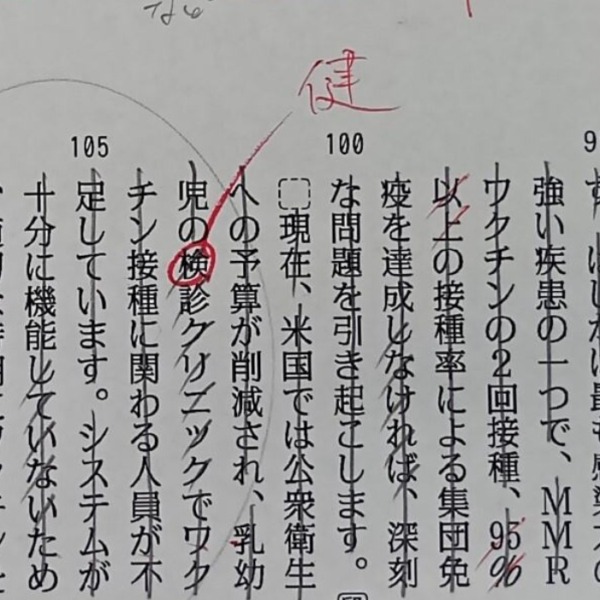 健
105
100
9
強い疾患の一つで、MMR
ワクチンの2回接種、95%
以上の接種率による集団免
疫を達成しなければ、深刻
な問題を引き起こします。
現在、米国では公衆衛生
への予算が削減され、乳幼
児の検診クリニックでワク
チン接種に関わる人員が不
足しています。システムが
十分に機能していないため